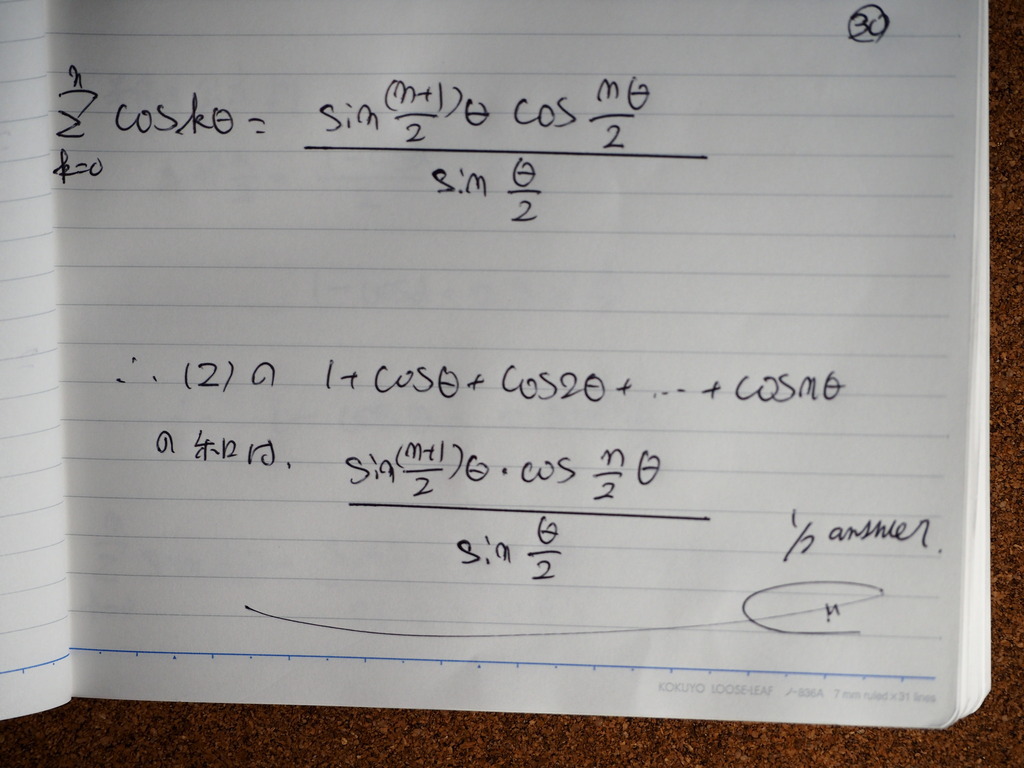 ㉚
n
∑ cos kθ = sin (n+1)/2 θ cos nθ/2
k=0
sin θ/2
∴ (2) の 1 + cosθ + cos2θ + … + cosnθ
の和は、 sin (n+1)/2 θ · cos n/2 θ
sin θ/2
answer.
KOKUYO LOOSE-LEAF ノ-836A 7 mm ruled×31 lines